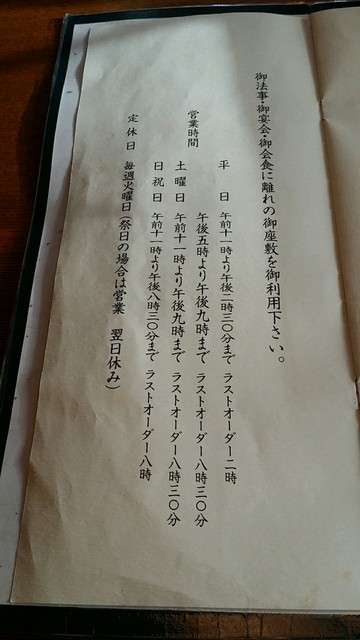 御法事・御宴会・御会食に離れの御座敷を御利用下さい。
営業時間
平日 午前十一時より午後二時三〇分まで ラストオーダー二時
午後五時より午後九時まで ラストオーダー八時三〇分
土曜日 午前十一時より午後九時まで ラストオーダー八時三〇分
日祝日 午前十一時より午後八時三〇分まで ラストオーダー八時
定休日 毎週火曜日(祭日の場合は営業 翌日休み)